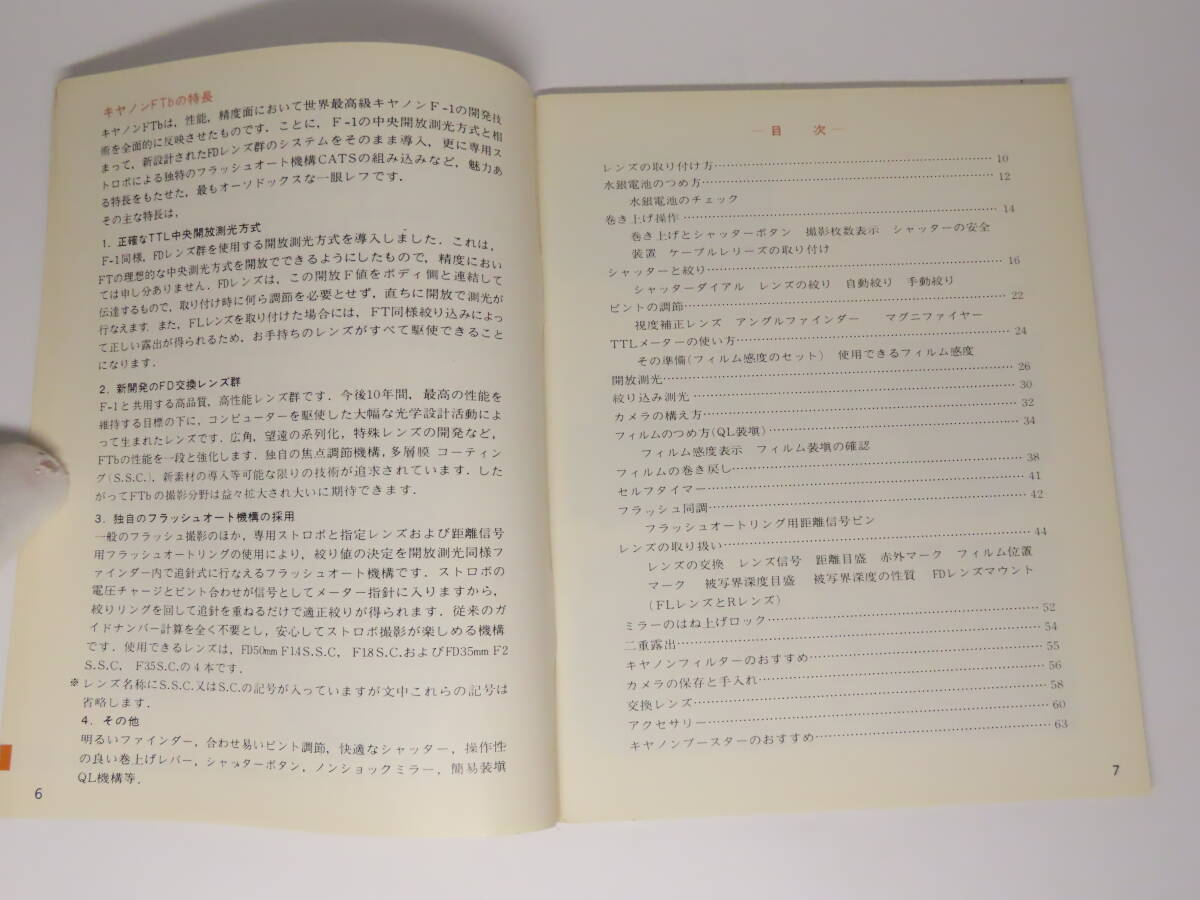 キヤノンFTbの特長
キヤノンFTbは，性能，精度面において世界最高級キヤノンF-1の開発技
術を全面的に反映させたものです．ことに，F-1の中央開放測光方式と相
まって，新設計されたFDレンズ群のシステムをそのまま導入，更に専用ス
トロボによる独特のフラッシュオート機構CATSの組み込みなど，魅力あ
る特長をもたせた，最もオーソドックスな一眼レフです．
その主な特長は，
1．正確なTTL中央開放測光方式
F-1同様，FDレンズ群を使用する開放測光方式を導入しました．これは，
FTの理想的な中央測光方式を開放でできるようにしたもので，精度におい
ては申し分ありません．FDレンズは，この開放F値をボディ側と連結して
伝達するもので，取り付け時に何ら調節を必要とせず，直ちに開放で測光が
行なえます．また，FLレンズを取り付けた場合には，FT同様絞り込みによっ
て正しい露出が得られるため，お手持ちのレンズがすべて駆使できること
になります．
2．新開発のFD交換レンズ群
F-1と共用する高品質，高性能レンズ群です．今後10年間，最高の性能を
維持する目標の下に，コンピューターを駆使した大幅な光学設計活動によ
って生まれたレンズです．広角，望遠の系列化，特殊レンズの開発など，
FTbの性能を一段と強化します．独自の焦点調節機構，多層膜 コーティン
グ(S.S.C.)，新素材の導入等可能な限りの技術が追求されています．した
がってFTbの撮影分野は益々拡大され大いに期待できます．
3．独自のフラッシュオート機構の採用
一般のフラッシュ撮影のほか，専用ストロボと指定レンズおよび距離信号
用フラッシュオートリングの使用により，絞り値の決定を開放測光同様フ
ァインダー内で追針式に行なえるフラッシュオート機構です．ストロボの
電圧チャージとピント合わせが信号としてメーター指針に入りますから，
絞りリングを回して追針を重ねるだけで適正絞りが得られます．従来のガ
イドナンバー計算を全く不要とし，安心してストロボ撮影が楽しめる機構
です．使用できるレンズは，FD50mm F1.4S.S.C, F1.8 S.C.およびFD35mm F2
S.S.C, F3.5S.C.の4本です．
※レンズ名称にS.S.C.又はS.C.の記号が入っていますが文中これらの記号は
省略します．
4．その他
明るいファインダー，合わせ易いピント調節，快適なシャッター，操作性
の良い巻上げレバー，シャッターボタン，ノンショックミラー，簡易装塡
QL機構等．
6
—目　次—
レンズの取り付け方……10
水銀電池のつめ方……12
水銀電池のチェック
巻き上げ操作……14
巻き上げとシャッターボタン　撮影枚数表示　シャッターの安全
装置　ケーブルレリーズの取り付け
シャッターと絞り……16
シャッターダイアル　レンズの絞り　自動絞り　手動絞り
ピントの調節……22
視度補正レンズ　アングルファインダー　マグニファイヤー
TTLメーターの使い方……24
その準備(フィルム感度のセット)　使用できるフィルム感度
開放測光……26
絞り込み測光……30
カメラの構え方……32
フィルムのつめ方(QL装塡)……34
フィルム感度表示　フィルム装塡の確認
フィルムの巻き戻し……38
セルフタイマー……41
フラッシュ同調……42
フラッシュオートリング用距離信号ピン
レンズの取り扱い……44
レンズの交換　レンズ信号　距離目盛　赤外マーク　フィルム位置
マーク　被写界深度目盛　被写界深度の性質　FDレンズマウント
(FLレンズとRレンズ)
ミラーのはね上げロック……52
二重露出……54
キヤノンフィルターのおすすめ……55
カメラの保存と手入れ……56
交換レンズ……58
アクセサリー……60
キヤノンブースターのおすすめ……63
7